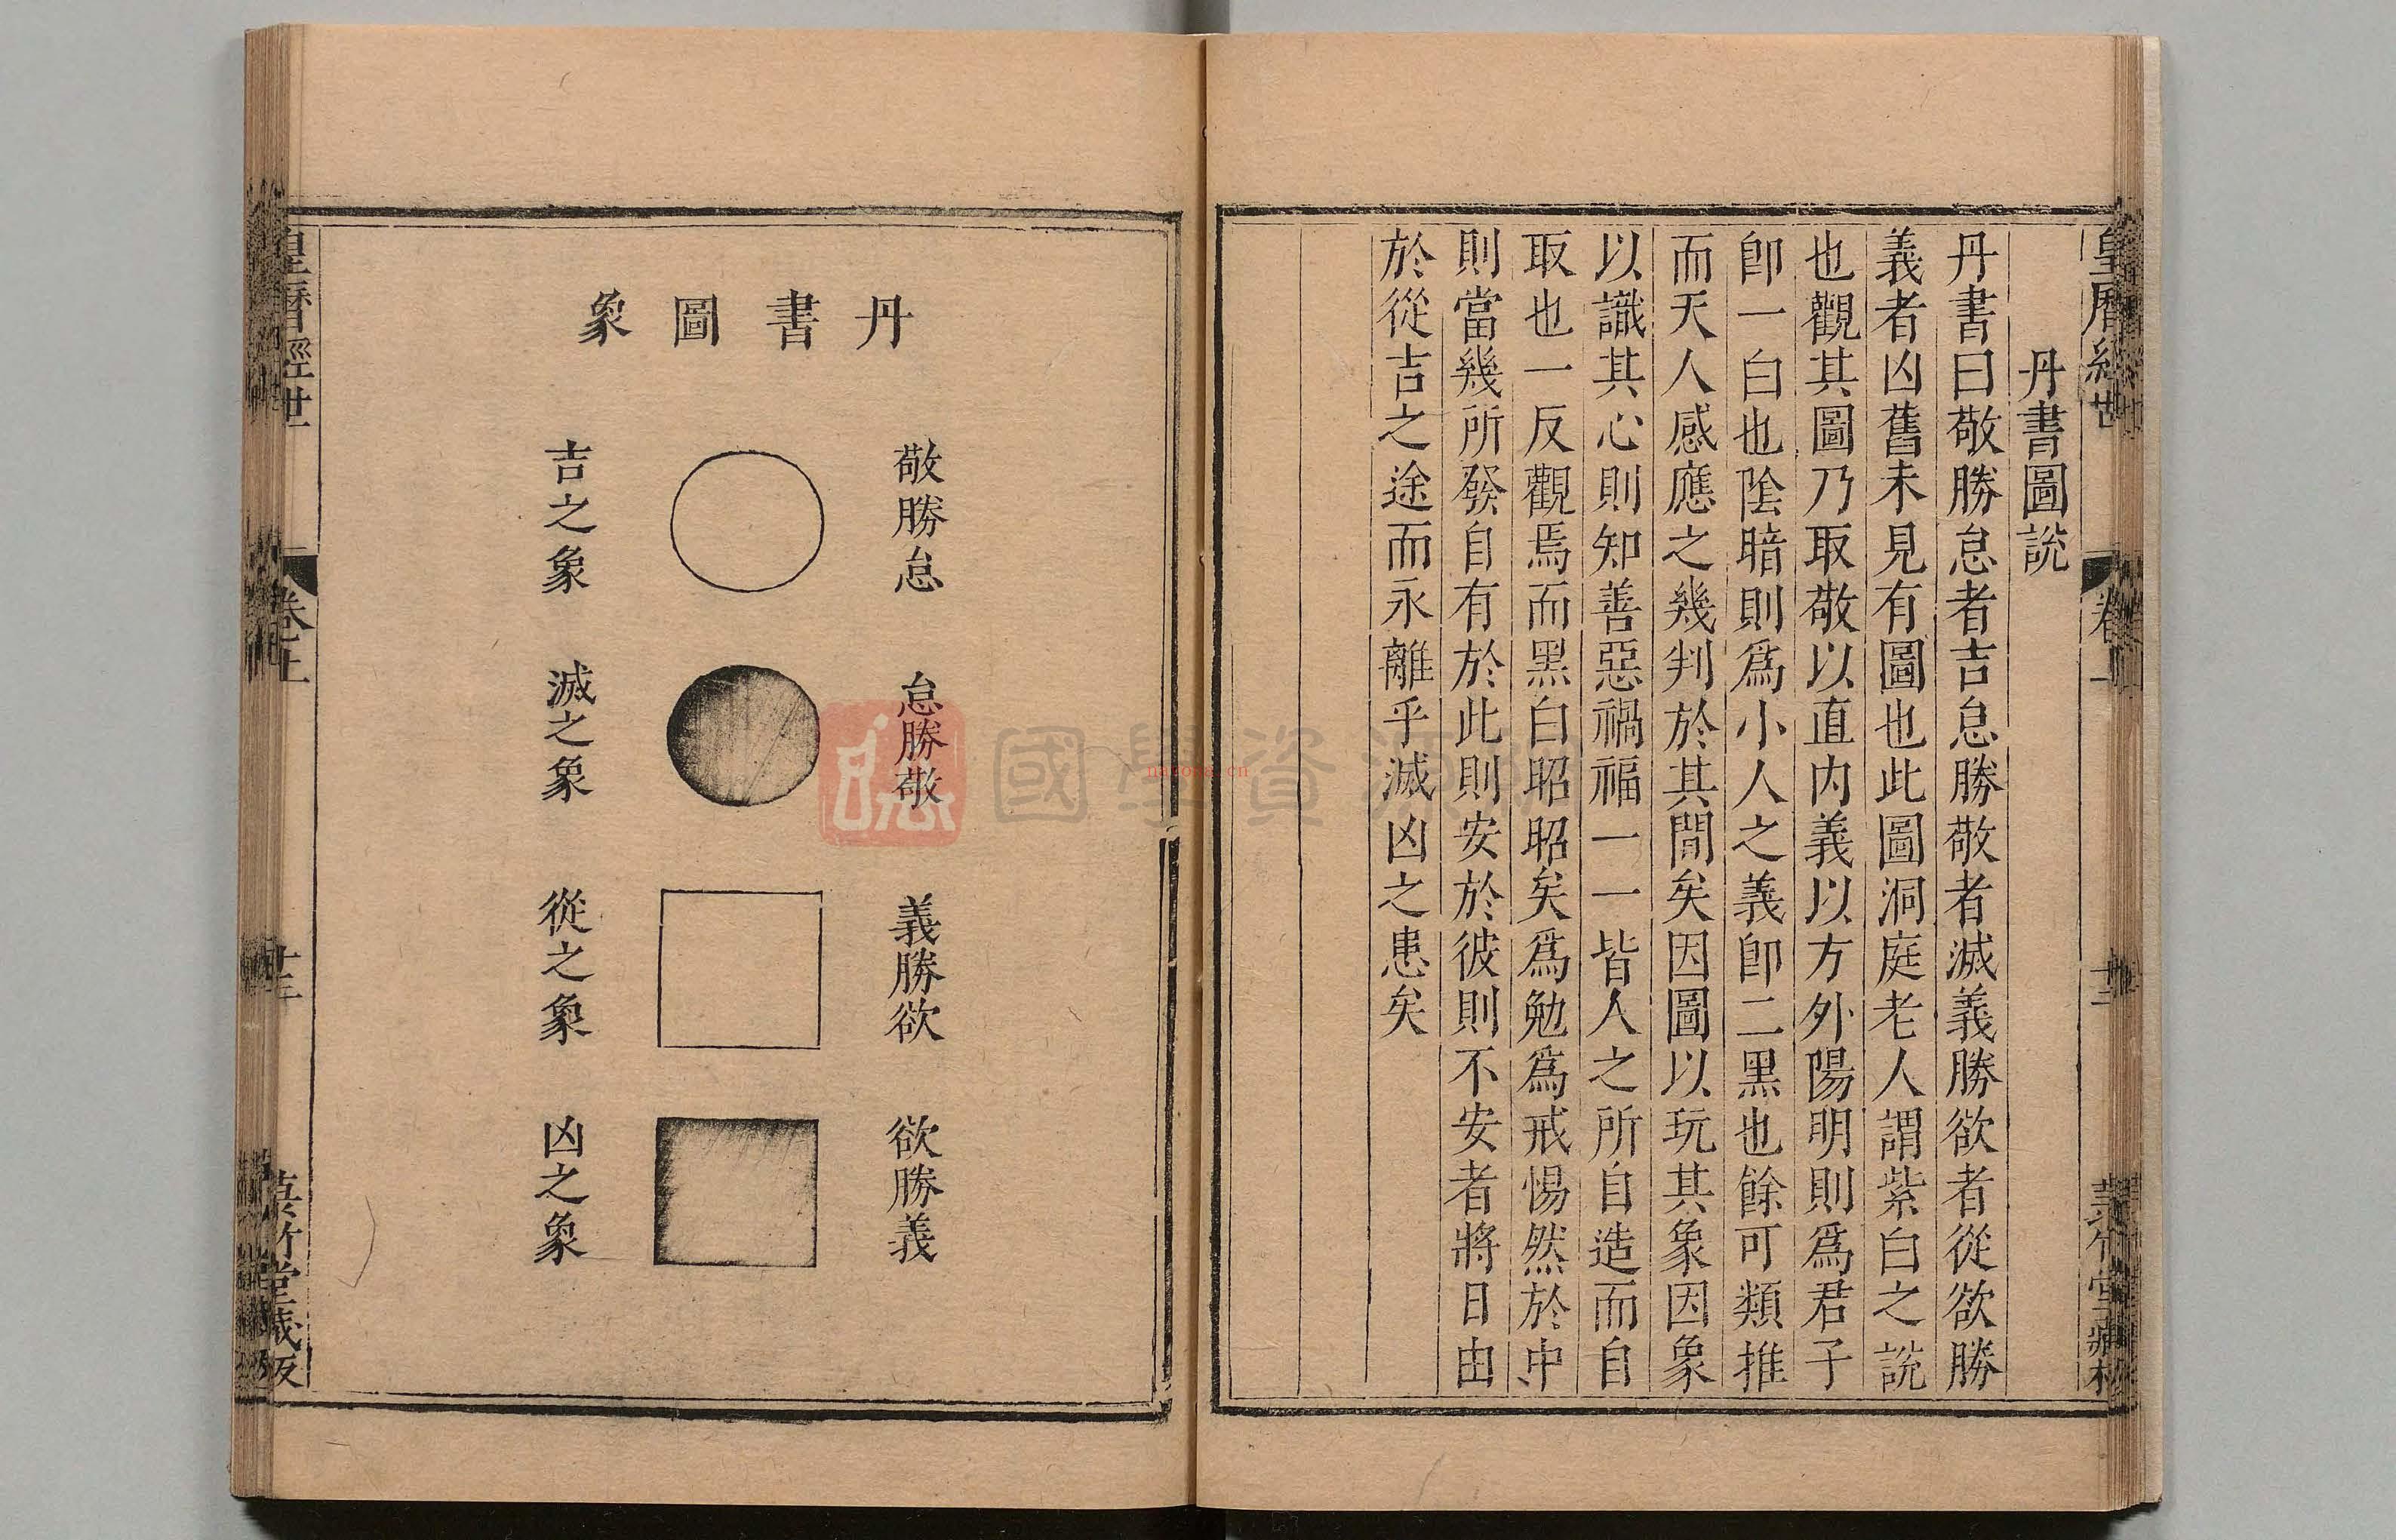 皇曆經世
卷上
十二
藏板
丹書圖說
丹書曰敬勝怠者吉怠勝敬者滅義勝欲者從欲勝
義者凶舊未見有圖也此圖洞庭老人謂紫白之說
也觀其圖乃取敬以直内義以方外陽明則爲君子
卽一白也陰暗則爲小人之義卽二黑也餘可類推
而天人感應之幾判於其間矣因圖以玩其象因象
以識其心則知善惡禍福一一皆人之所自造而自
取也一反觀焉而黑白昭昭矣爲勉爲戒惕然於中
則當幾所發自有於此則安於彼則不安者將日由
於從吉之途而永離乎滅凶之患矣
丹書圖象
敬勝怠
吉之象
怠勝敬
滅之象
義勝欲
從之象
欲勝義
凶之象
皇曆經世
卷上
十三
竹堂藏板
國學資源
nayona.cn